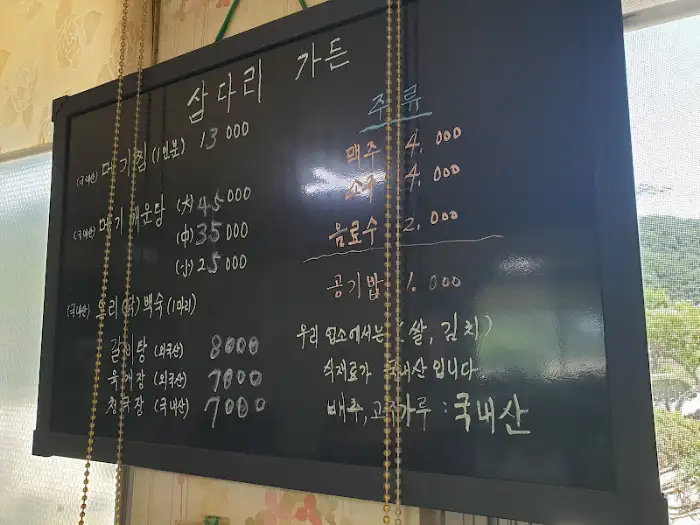 삼다리 가든
(국내산) 메기찜 (1인분) 13000
(국내산) 메기매운탕 (大) 45000
(中) 35000
(小) 25000
(국내산) 오리(닭) 백숙 (1마리)
갈비탕 (외국산) 8000
육개장 (외국산) 7000
청국장 (국내산) 7000
주류
맥주 4,000
소주 4,000
음료수 2,000
공기밥 1,000
우리 업소에서는 (쌀, 김치)
식재료가 국내산 입니다.
배추, 고추가루 : 국내산